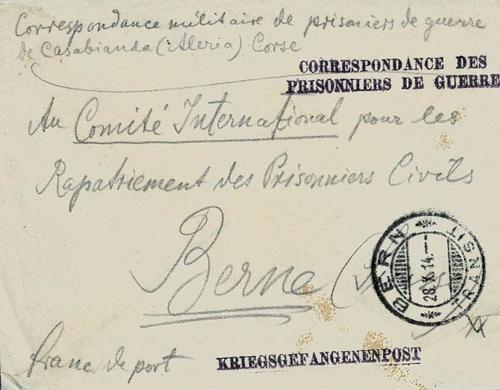 Correspondance militaire de prisoniers de guerre
de Casabianda (Aleria) Corse
CORRESPONDANCE DES
PRISONNIERS DE GUERRE
Au Comité International pour les
Rapatriement des Prisonniers Civils
Berne
BERN
28.X.14.
TRANSIT
franc de port
KRIEGSGEFANGENENPOST